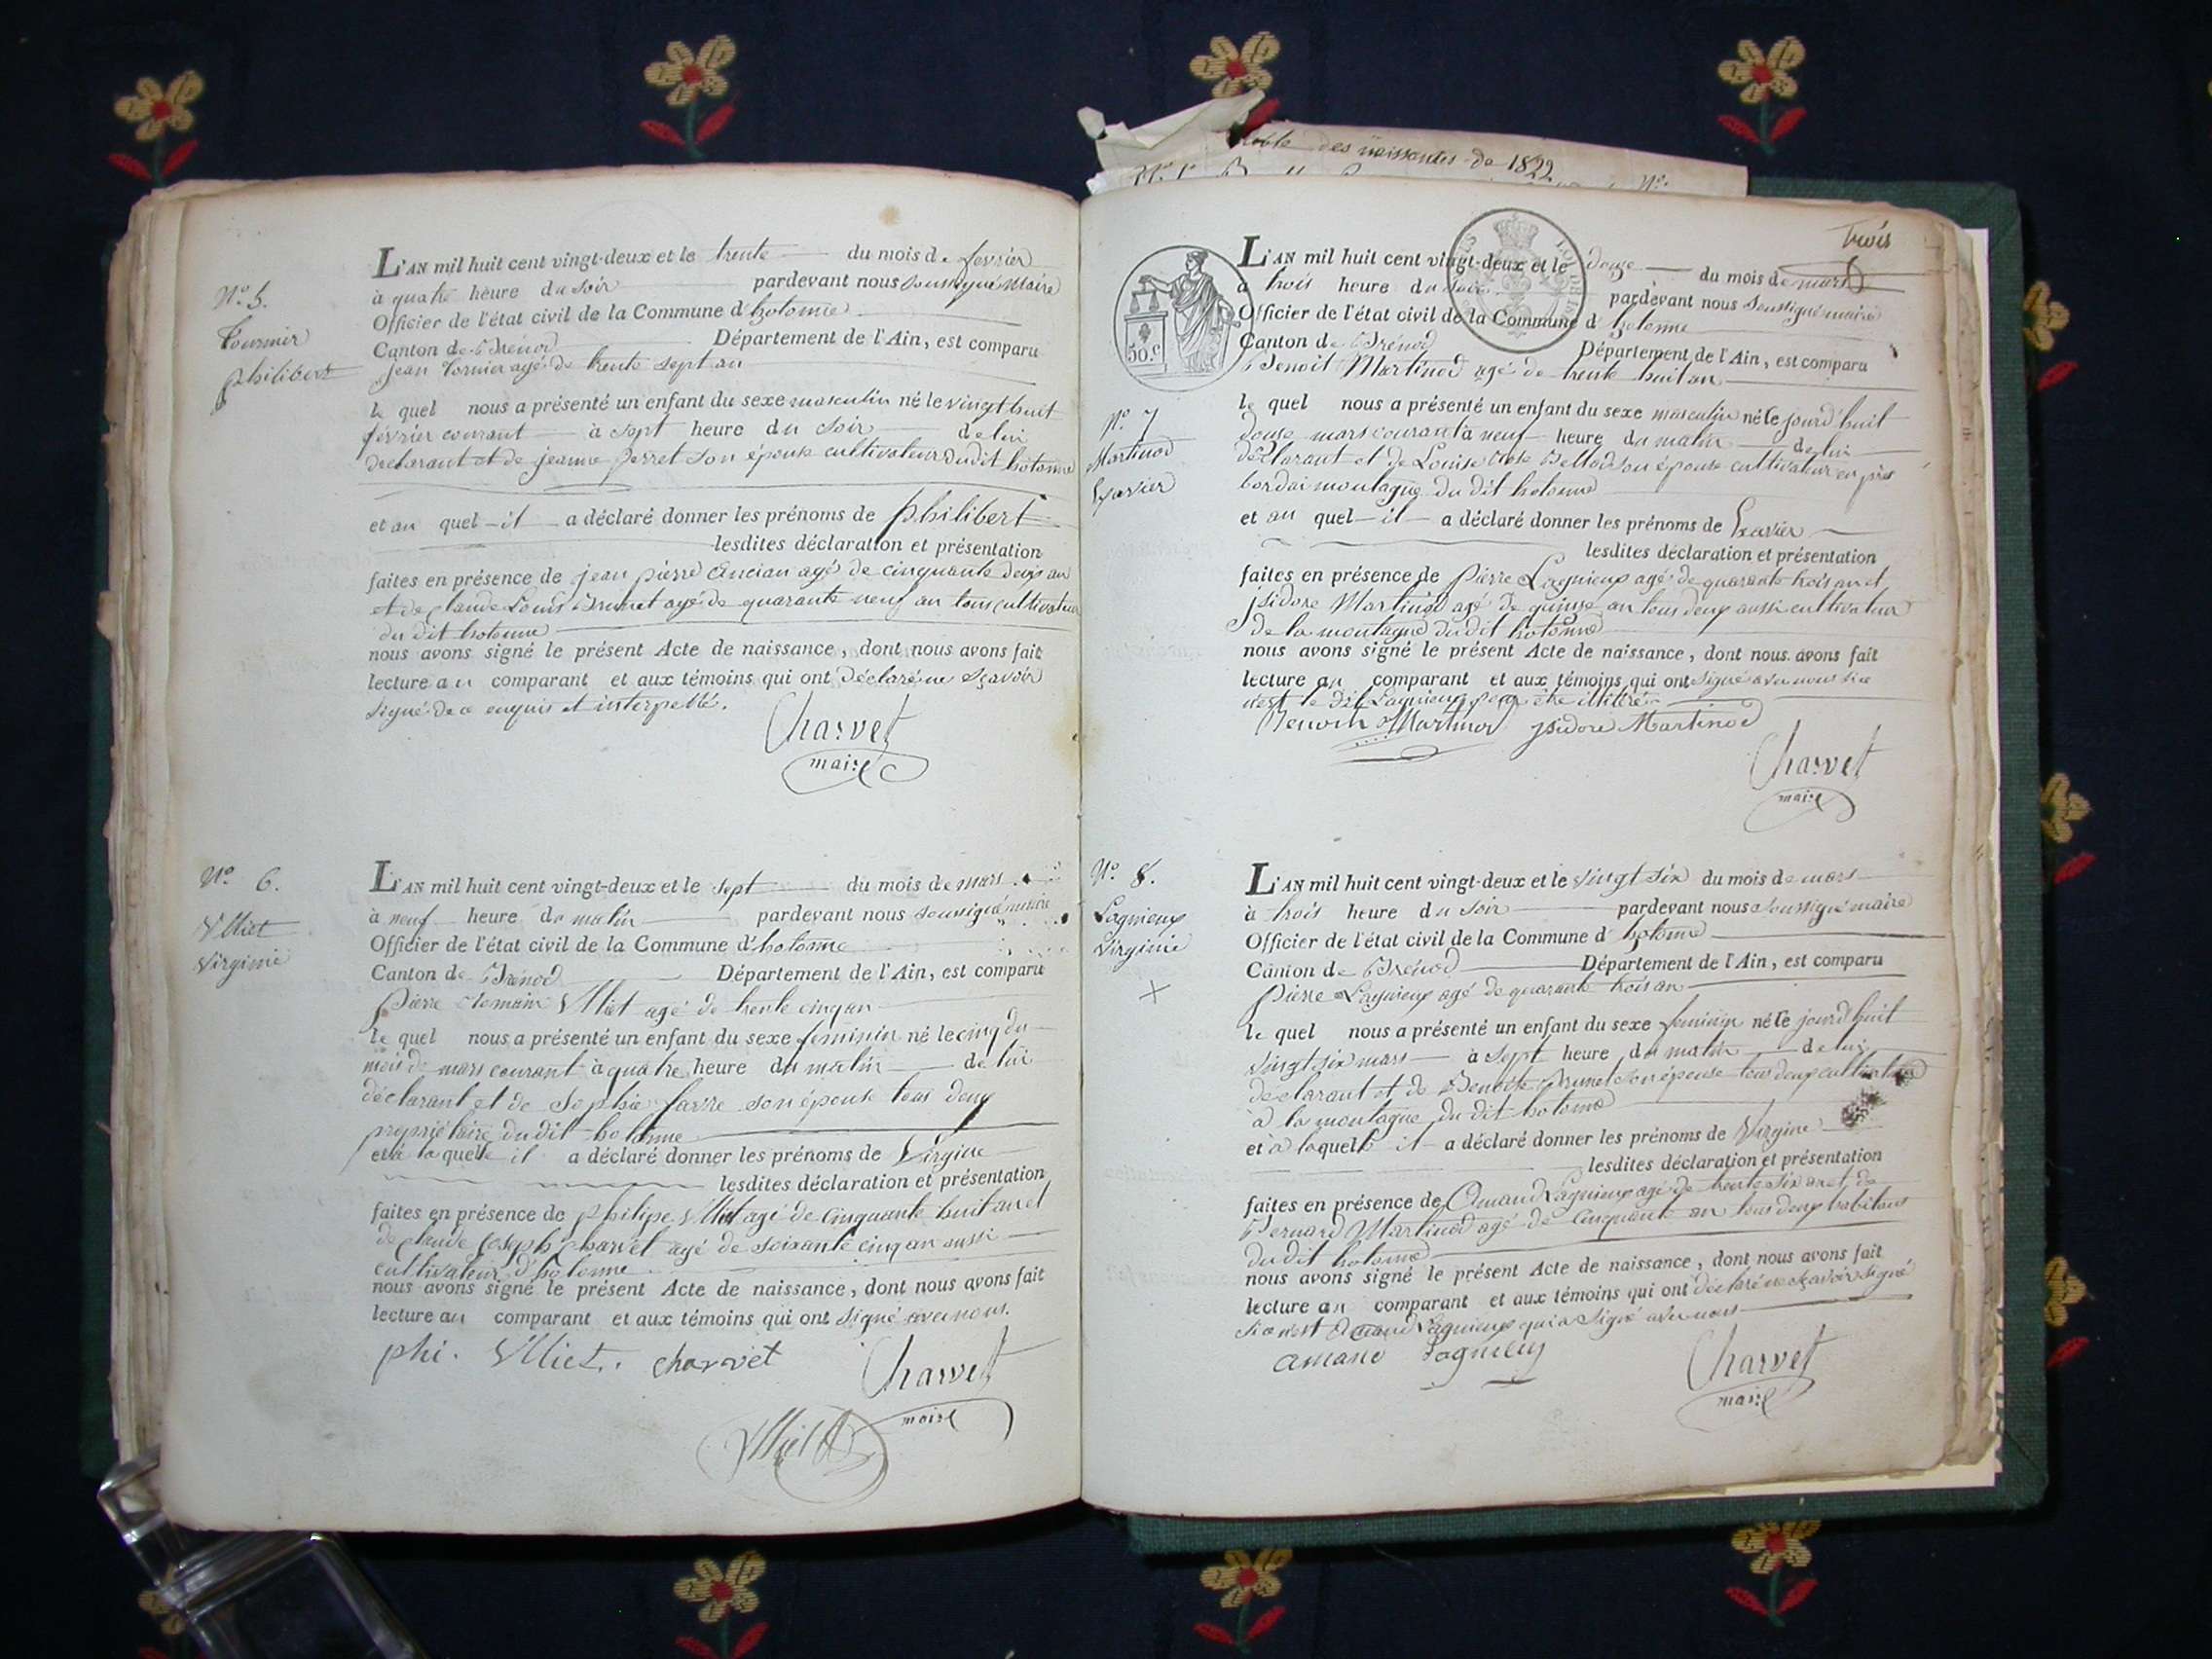 table des naissantes de 1822
N° 5.
Tournier
philibert
L'AN mil huit cent vingt-deux et le trente du mois de fevrier
à quatre heure du soir pardevant nous soussigné Maire
Officier de l'état civil de la Commune d'hotonne
Canton de Brénod Département de l'Ain, est comparu
jean Tornier agé de trente sept an
le quel nous a présenté un enfant du sexe masculin né le vingt huit
février courant à sept heure du soir de lui
declarant et de jeanne perret son épouse cultivateur du dit hotonne
et au quel il a déclaré donner les prénoms de philibert
lesdites déclaration et présentation
faites en présence de jean pierre Ancian agé de cinquante deux an
et de claude Louis Brunet agé de quarante neuf an tous cultivateur
du dit hotonne
nous avons signé le présent Acte de naissance, dont nous avons fait
lecture au comparant et aux témoins qui ont déclaré ne sçavoir
signé de ce enquis et interpellé.
Charvet
maire
N° 6.
Vlliet
Virginie
L'AN mil huit cent vingt-deux et le sept du mois de mars
à neuf heure du matin pardevant nous soussigné maire
Officier de l'état civil de la Commune d'hotonne
Canton de Brénod Département de l'Ain, est comparu
pierre Romain Vlliet agé de trente cinq an
le quel nous a présenté un enfant du sexe feminin né le cinq du
mois de mars courant à quatre heure du matin de lui
déclarant et de Sophie favre son épouse tous deux
propriétaire du dit hotonne
et à la quelle il a déclaré donner les prénoms de Virgine
lesdites déclaration et présentation
faites en présence de philipe Vlliet agé de cinquante huit an et
de claude joseph charvet agé de soixante cinq an aussi
cultivateur d'hotonne
nous avons signé le présent Acte de naissance, dont nous avons fait
lecture au comparant et aux témoins qui ont signé avec nous.
phi. Vlliet. charvet
Charvet
maire
Vlliet
trois
50.c
L'AN mil huit cent vingt-deux et le douze du mois de mars
à trois heure du soir pardevant nous soussigné maire
Officier de l'état civil de la Commune d hotonne
Canton de Brénod Département de l'Ain, est comparu
Benoit Martinod agé de trente huit an
N° 7
Martinod
Xavier
le quel nous a présenté un enfant du sexe masculin né le jourd'huit
douse mars courant à neuf heure du matin de lui
déclarant et de Louise son épouse cultivateur en
montagne du dit hotonne
et au quel il a déclaré donner les prénoms de Xavier
lesdites déclaration et présentation
faites en présence de pierre Lagnieux agé de quarante trois an et
jsidore Martinod agé de quinse an tous deux aussi cultivateur
de la montagne du dit hotonne
nous avons signé le présent Acte de naissance, dont nous avons fait
lecture au comparant et aux témoins qui ont signé avec nous si ce
n'est le dit Lagnieux pour être illitéré
Benoit Martinod jsidore Martinod
Charvet
maire
N° 8.
Lagnieux
Virginie
L'AN mil huit cent vingt-deux et le vingt six du mois de mars
à trois heure du soir pardevant nous soussigné maire
Officier de l'état civil de la Commune d' hotonne
Canton de Brénod Département de l'Ain, est comparu
pierre Lagnieux agé de quarante trois an
le quel nous a présenté un enfant du sexe feminin né le jourd'huit
vingt six mars à sept heure du matin de lui
declarant et de Benoite Brunet son épouse tous deux cultivateur
à la montagne du dit hotonne
et à laquelle il a déclaré donner les prénoms de Virgine
lesdites déclaration et présentation
faites en présence de Amand Lagnieux agé de trente six an et de
Bernard Martinod agé de cinquante an tous deux habitans
du dit hotonne
nous avons signé le présent Acte de naissance, dont nous avons fait
lecture au comparant et aux témoins qui ont déclaré ne sçavoir signé
si ce n'est Amand Lagnieux qui a signé avec nous
amand Lagnieux
Charvet
maire